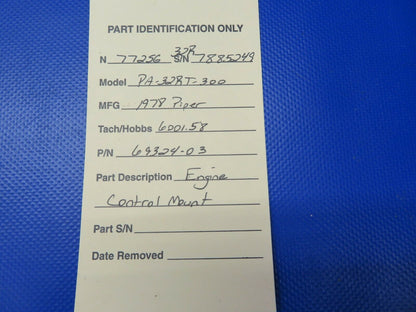 PART IDENTIFICATION ONLY
32R
N 77256 S/N 7885249
Model PA-32RT-300
MFG 1978 Piper
Tach/Hobbs 6001.58
P/N 69324-03
Part Description Engine
Control Mount
Part S/N
Date Removed